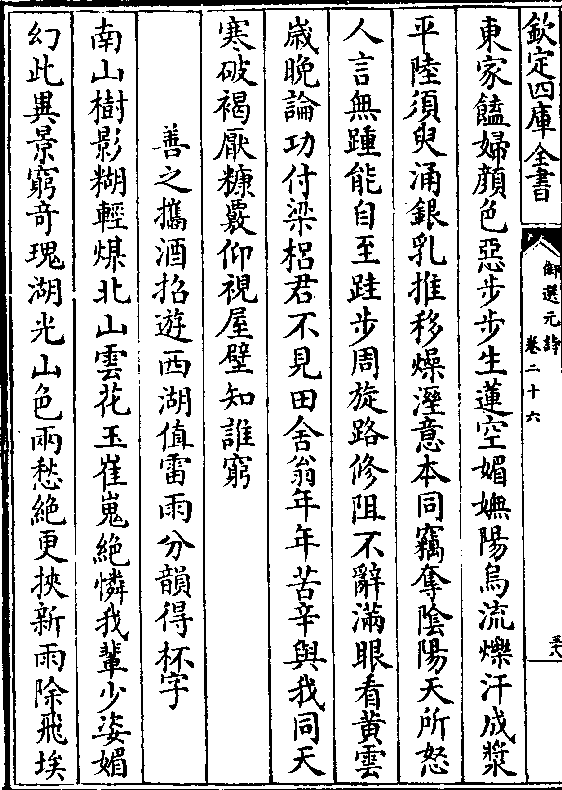 欽定四庫全書
御選元詩
卷二十六
東家饁婦顔色惡步步生蓮空媚嫵陽烏流爍汗成漿
平陸須臾涌銀乳推移燥溼意本同竊奪陰陽天所怒
人言無踵能自至跬步周旋路修阻不辭滿眼看黄雲
嵗晚論功付梁梠君不見田舍翁年年苦辛與我同天
寒破褐厭糠覈仰視屋壁知誰窮
善之攜酒招遊西湖值雷雨分韻得杯字
南山樹影糊輕煤北山雲花玉崔嵬絶憐我輩少姿媚
幻此異景窮奇瑰湖光山色兩愁絶更挾新雨除飛埃